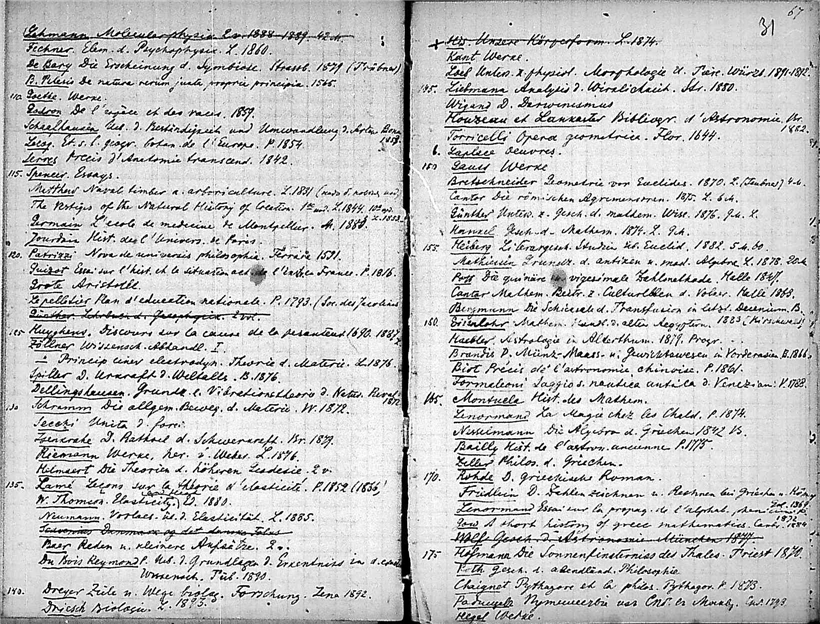 Lehmann Molecularphysik 2 v. 1888-1889. 42 M.
Fechner. Elem. d. Psychophysik. L. 1860.
De Bary Die Erscheinung d. Symbiose. Strassb. 1879 (Trübner)
De natura rerum juxta propria principia. 1565.
110. Goethe. Werke.
Godron De l'espèce et des races. 1859.
Schaafhausen Ueb. d. Beständigkeit und Umwandlung d. Arten Bonn
1853.
Lecoq. Et. s. l. geogr. botan. de l'Europe. P. 1854.
Serres Précis d'Anatomie transcend. 1842.
115. Spencer. Essays.
Matthew Naval timber a. arboriculture. L. 1831
The Vestiges of the Natural History of Creation. 1st ed. L. 1844. 10th ed.
L. 1853.
Germain L'école de medecine de Montpellier.
Jourdain Hist. de l'Univers. de Paris.
120. Patrizzi Nova de universis philosophia. Ferrare 1591.
Guizot Essai sur l'hist. et la situation act. de France. P. 1816.
Grote Aristotle.
Lepelletier Plan d'education nationale. P. 1793.
Günther Lehrbuch d. Geophysik. 2 vol.
125 Huyghens. Discours sur la cause de la pesanteur 1690.
Zöllner Wissensch. Abhandl. I.
" Princip einer electrodyn. Theorie d. Materie. L. 1876.
Spiller D. Urkraft d. Weltalls. B. 1876.
Dellingshausen. Grundz. e. Vibrationstheorie d. Natur. Reval
1872.
130 Schramm Die allgem. Beweg. d. Materie. W. 1872.
Secchi Unità d. forze.
Isenkrahe D. Räthsel d. Schwerkraft. Br. 1879.
Riemann Werke, her. v. Weber. L. 1876.
Helmert Die Theorien d. höheren Geodesie. 2 v.
135. Lamé Leçons sur la théorie d'elasticité. P. 1852 (1866)
W. Thomson. Elasticity. 1880.
Neumann. Vorles. üb. d. Elasticität. L. 1885.
Baer Reden u. kleinere Aufsätze. 2 v.
Du Bois Reymond P. Ueb. d. Grundlagen d. Erkenntnis in d. exact.
Wissensch. Tüb. 1890.
140. Dreyer Ziele u. Wege biolog. Forschung. Jena 1892.
Driesch Biologie. L. 1893.
67
31
His. Unsere Körperform. L. 1874.
Kant Werke.
Loeb Unters. z. physiol. Morphologie d. Tiere. Würzb. 1891-1892.
145. Liebmann Analysis d. Wirklichkeit. Str. 1880.
Wigand D. Darwinismus
Houzeau et Lancaster Bibliogr. d'Astronomie. Br.
1882.
Torricelli Opera geometrica. Flor. 1644.
6. Laplace Oeuvres.
150 Gauss Werke
Bretschneider Geometrie vor Euclides. 1870. L. (Teubner) 4 M.
Cantor Die römischen Agrimensoren. 1875. L. 6 M.
Günther Unters. z. Gesch. d. mathem. Wiss. 1876. 9 M. L.
Hankel Gesch. d. Mathem. 1874. L. 9 M.
155. Heiberg Litterargesch. Studien üb. Euclid. 1882. 5 M. 60.
Matthiessen Grundz. d. antiken u. mod. Algebra L. 1878. 20 M.
Pott Die quinäre u. vigesimale Zählmethode. Halle 1847.
Cantor Mathem. Beitr. z. Culturleben d. Völker. Halle 1863.
Bergmann Die Schicksale d. Transfusion in letzt. Decennium. B.
1883 (Hirschwald)
160. Eisenlohr Mathem. Handb. d. alten Aegypten.
Haebler Astrologie in Alterthum. 1879. Progr.
Brandis D. Münz- Maass- u. Gewichtswesen in Vorderasien B. 1866.
Biot Précis de l'astronomie chinoise. P. 1861.
Formaleoni Saggio s. nautica antica d. Veneziani. V. 1788.
165. Montucla Hist. des Mathem.
Lenormand La Magie chez les Chald. P. 1874.
Nesselmann Die Algebra d. Griechen. 1842 B.
Bailly Hist. de l'astron. ancienne P. 1775
Zeller Philos. d. Griechen.
170. Rohde D. griechische Roman.
Friedlein D. Zahlenzeichnen u. Rechnen bei Griechen u. Röm.
Lenormand Essai sur la propag. de l'alphab. phenic.
1872
Gow A short history of greec mathematics. Camb. 1884
Wolf Gesch. d. Astronomie München 1877
175 Hofmann Die Sonnenfinsterniss des Thales. Triest 1870.
Roth. Gesch. d. abendländ. Philosophie
Chaignet Pythagore et la philos. Pythagor. P. 1873.
Hegel Werke.